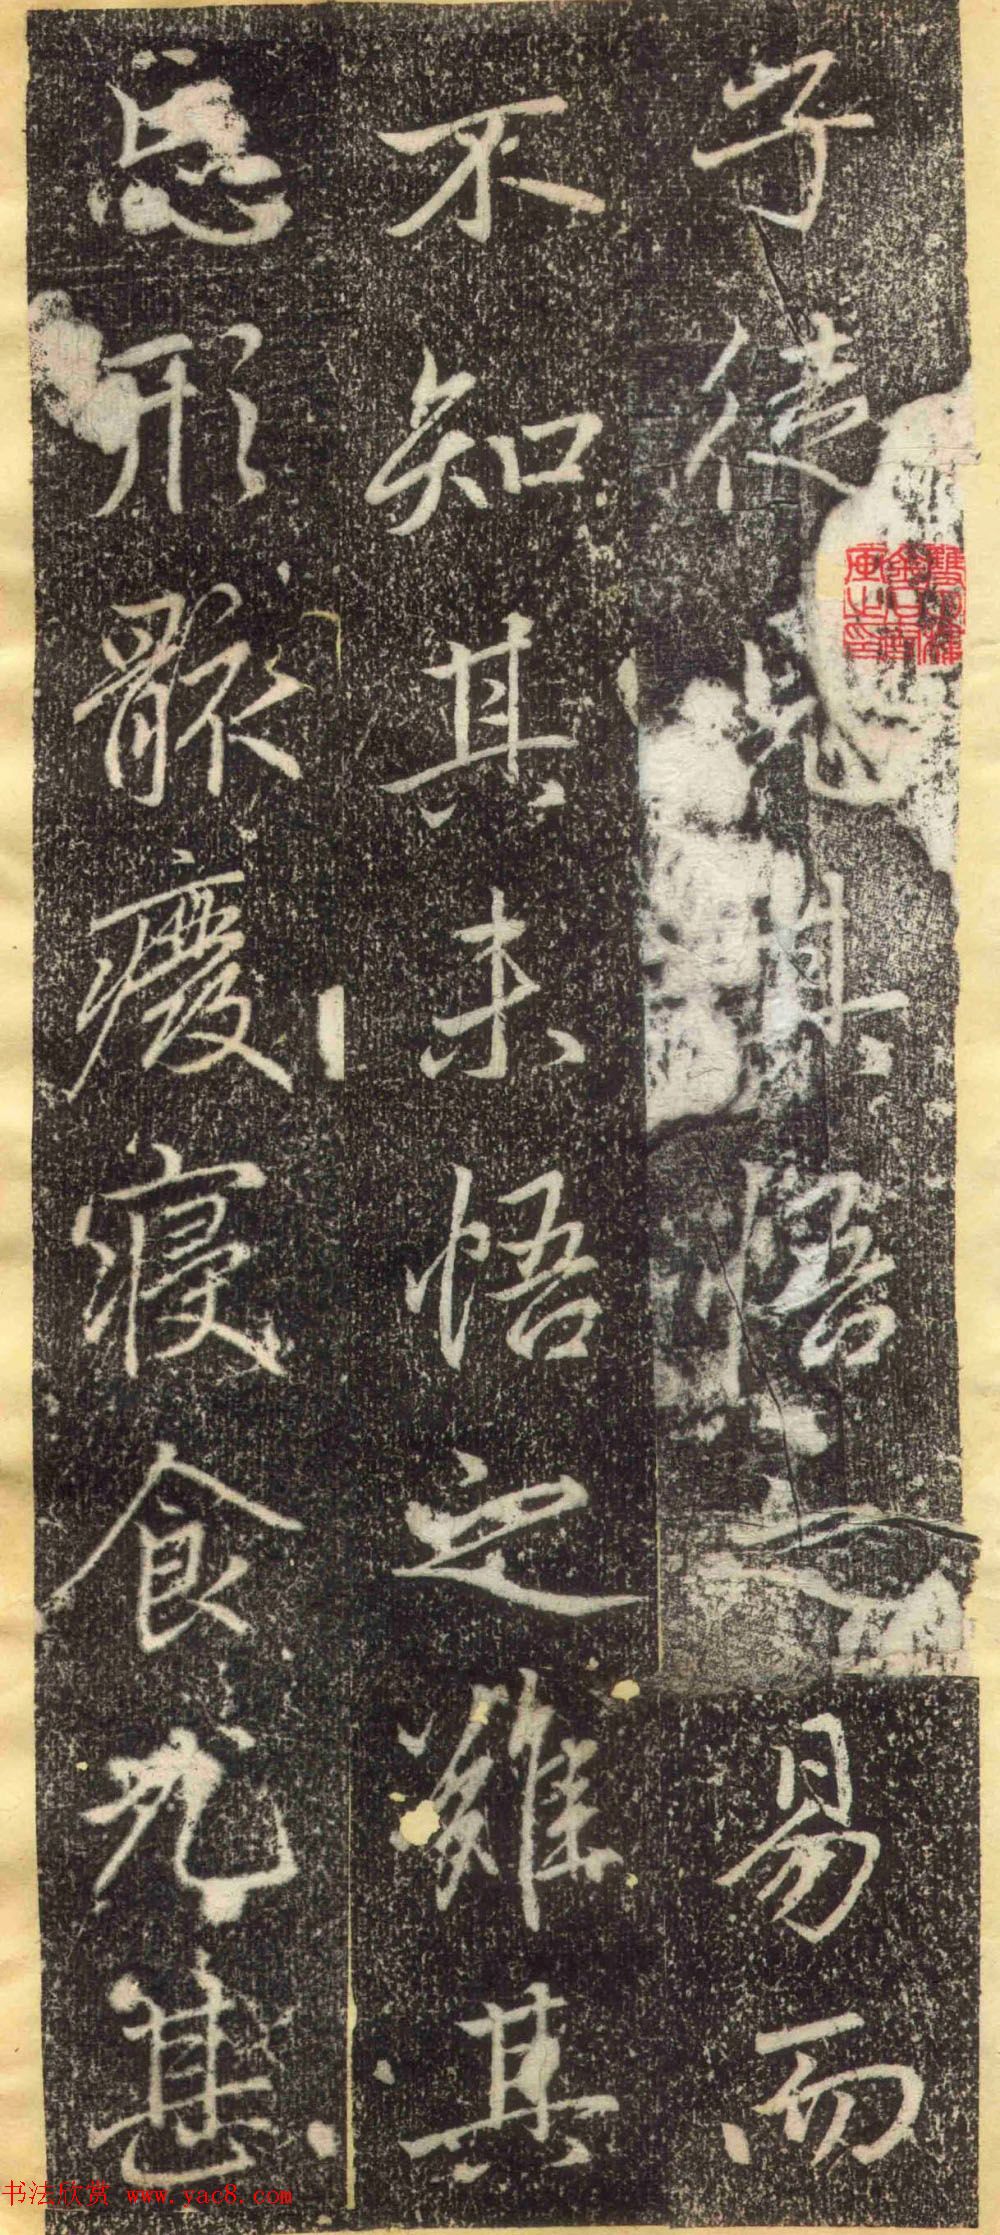 子徒見其悟之易而
不知其未悟之難其
忘形骸廢寢食尤甚
书法欣赏 www.yac8.com